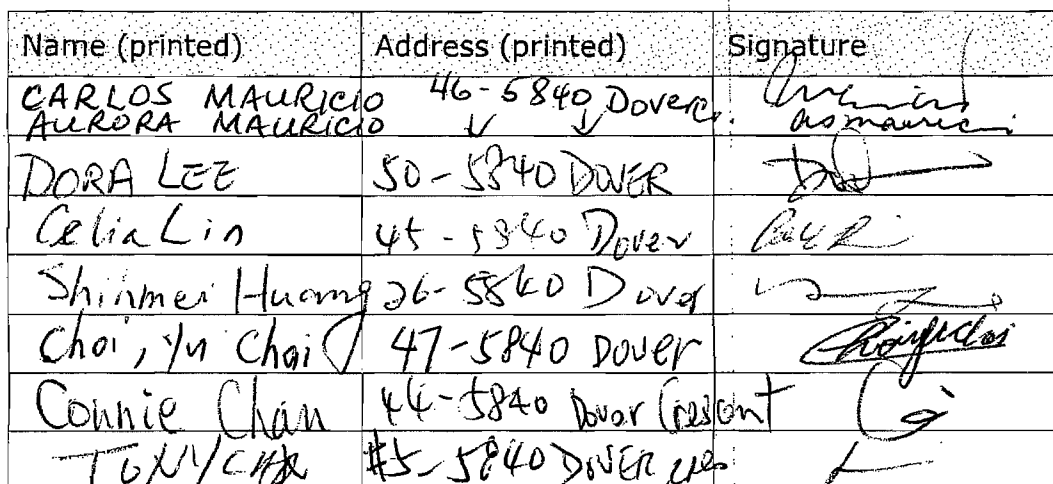 Name (printed) Address (printed) Signature
CARLOS MAURICIO 46-5840 Dover
AURORA MAURICIO
DORA LEE 50-5840 DOVER
Celia Lin 45-5840 Dover
Shinmei Huang 26-5840 Dover
Choi, Yu Chai 47-5840 Dover
Connie Chan 44-5840 Dover Crescent
TONY #5-5840 DOVER